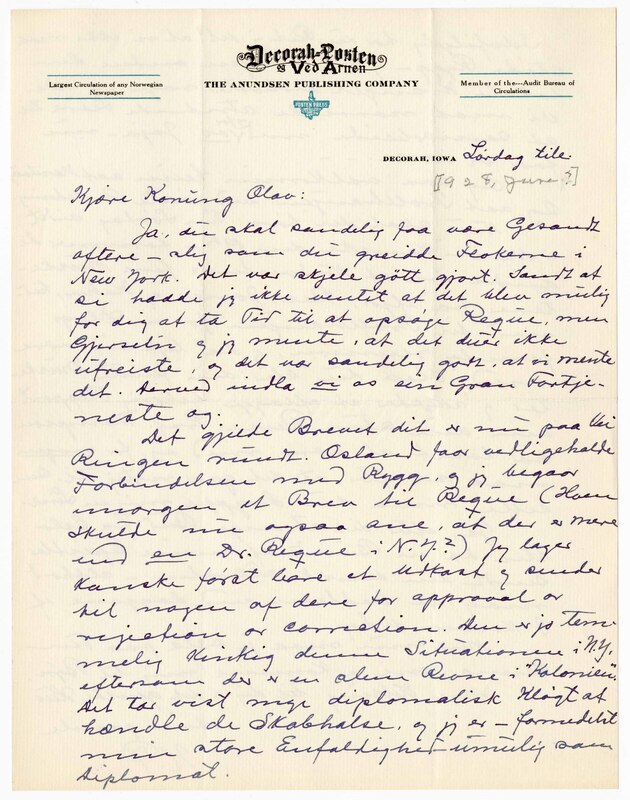 Decorah-Posten
Ved Arnen
THE ANUNDSEN PUBLISHING COMPANY
Largest Circulation of any Norwegian
Newspaper
Member of the---Audit Bureau of
Circulations
POSTEN PRESS
DECORAH, IOWA Lørdag
[1928, June?]
Kjære Konning Olav:
Ja, du skal sandelig faa være Gesandt
oftere – slig som du greidde Floкerne i
New York. Det var skjele gott gjort. Sandt at
si hadde jeg ikke ventet at det blev mulig
for dig at ta Tid til at opsøge Reque, men
Gjerseln og jeg mente, at det duer ikke
ufreiste, og det var sandelig godt, at vi mente
det. Derved indla vi os en Gran Fortje-
neste og.
Det gjilde Brevet dit er nu paa Vei
Ringen rundt. Osland faar vedligeholde
Forbindelsen med Rygg, og jeg begaar
imorgen et Brev til Reque (Hvem
skulde nu ogsaa ane, at der er mere
end en Dr. Reque i N.Y.?) Jeg lager
kanske først bare et Udkast og sender
til nogen af dere for approval or
rejection or correction. Den er jo tem-
melig kinkig denne Situationen i N.Y.
eftersom der er en slem Revne i "Kolonien".
Det tar vist mye diplomatisk Kløgt at
handle de Skabhalse, og jeg er – formedelst
min store Enfoldighed – umulig som
Diplomat.